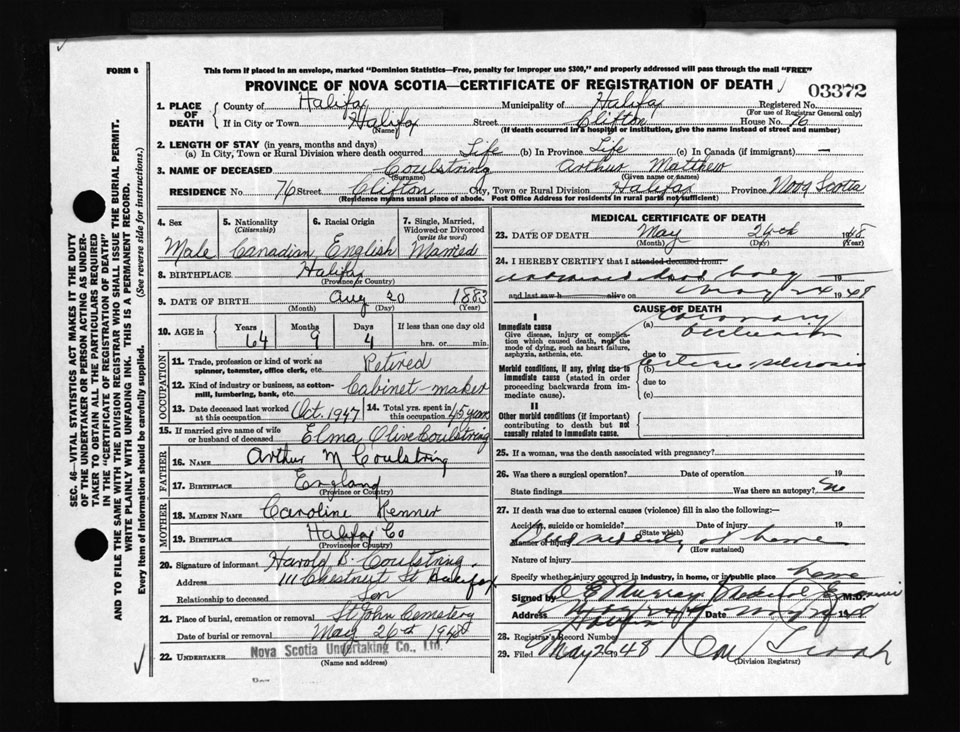 FORM 6
This form if placed in an envelope, marked "Dominion Statistics—Free, penalty for improper use $300," and properly addressed will pass through the mail "FREE"
PROVINCE OF NOVA SCOTIA—CERTIFICATE OF REGISTRATION OF DEATH
03372
SEC. 46—VITAL STATISTICS ACT MAKES IT THE DUTY
OF THE UNDERTAKER OR PERSON ACTING AS UNDER-
TAKER TO OBTAIN ALL THE PARTICULARS REQUIRED
IN THE "CERTIFICATE OF REGISTRATION OF DEATH"
AND TO FILE THE SAME WITH THE DIVISION REGISTRAR WHO SHALL ISSUE THE BURIAL PERMIT.
WRITE PLAINLY WITH UNFADING INK. THIS IS A PERMANENT RECORD.
Every item of Information should be carefully supplied. (See reverse side for instructions.)
1. PLACE OF DEATH
County of Halifax Municipality of Halifax Registered No.
(For use of Registrar General only)
If in City or Town Halifax Street Clifton House No. 76
(Name) (If death occurred in a hospital or institution, give the name instead of street and number)
2. LENGTH OF STAY (in years, months and days)
(a) In City, Town or Rural Division where death occurred Life (b) In Province Life (c) In Canada (if immigrant) —
3. NAME OF DECEASED Coulstring Arthur Matthew
(Surname) (Given name or names)
RESIDENCE No. 76 Street Clifton City, Town or Rural Division Halifax Province Nova Scotia
(Residence means usual place of abode. Post Office Address for residents in rural parts not sufficient)
4. Sex Male
5. Nationality (Citizenship) Canadian
6. Racial Origin English
7. Single, Married, Widowed or Divorced (write the word) Married
8. BIRTHPLACE Halifax
(Province or Country)
9. DATE OF BIRTH Aug 20 1883
(Month) (Day) (Year)
10. AGE in Years 64 Months 9 Days 4 If less than one day old hrs. or min.
OCCUPATION
11. Trade, profession or kind of work as spinner, teamster, office clerk, etc. Retired
12. Kind of industry or business, as cotton-mill, lumbering, bank, etc. Cabinet-maker
13. Date deceased last worked at this occupation Oct. 1947
14. Total yrs. spent in this occupation 45 years
15. If married give name of wife or husband of deceased Elma Olive Coulstring
FATHER
16. NAME Arthur M Coulstring
17. BIRTHPLACE England
(Province or Country)
MOTHER
18. MAIDEN NAME Caroline Kenner
19. BIRTHPLACE Halifax Co
(Province or Country)
20. Signature of informant Harold B. Coulstring
Address 111 Chestnut St Halifax
Relationship to deceased Son
21. Place of burial, cremation or removal St John Cemetery
Date of burial or removal May 26th 1948
22. UNDERTAKER Nova Scotia Undertaking Co., Ltd.
(Name and address)
MEDICAL CERTIFICATE OF DEATH
23. DATE OF DEATH May 24th 1948
(Month) (Day) (Year)
24. I HEREBY CERTIFY that I attended deceased from:
dead body 19
and last saw h alive on May 24 1948
CAUSE OF DEATH
I
Immediate cause (a) Coronary
occlusion
Give disease, injury or complication which caused death, not the mode of dying, such as heart failure, asphyxia, asthenia, etc.
due to
Morbid conditions, if any, giving rise to immediate cause (stated in order proceeding backwards from immediate cause).
(b) arterio sclerosis
due to
(c)
II
Other morbid conditions (if important) contributing to death but not causally related to immediate cause.
25. If a woman, was the death associated with pregnancy?
26. Was there a surgical operation? Date of operation 19
State findings Was there an autopsy? No
27. If death was due to external causes (violence) fill in also the following:
Accident, suicide or homicide? Date of injury 19
(State which)
Manner of injury Died suddenly at home
(How sustained)
Nature of injury
Specify whether injury occurred in industry, in home, or in public place home
Signed by Murray Medical Examiner M.D.
Address Halifax Date May 1948
28. Registrar's Record Number
29. Filed May 26 1948
(Division Registrar)